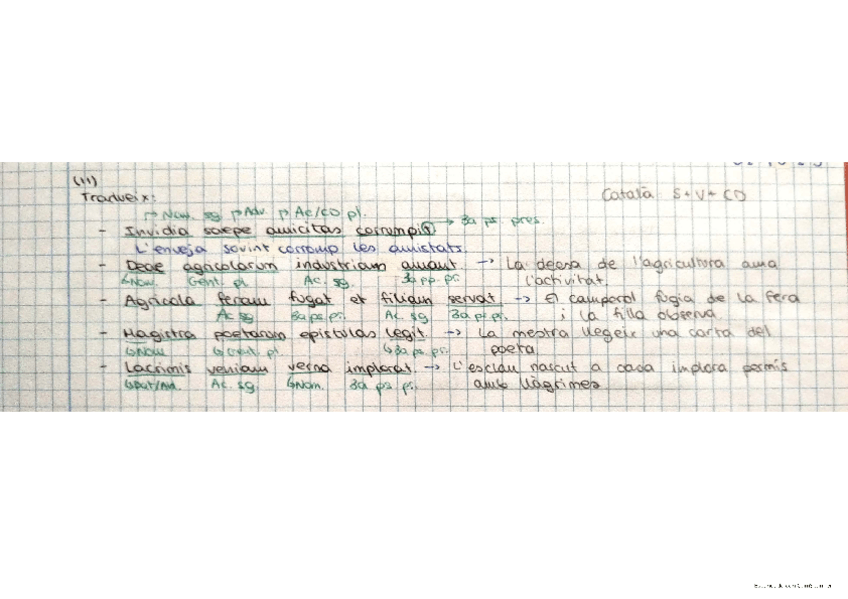 (11)
Tradueix: Català S+V+CD
Nom. sg Adv. Ac/CD pl.
- Invidia saepe amicitas corrumpit → 3a ps. pres.
L'enveja sovint corromp les amistats.
- Deae agricolarum industriam amant → La deesa de l'agricultura ama
Nom. Genit. pl. Ac. sg. 3a pp. pr. l'activitat.
- Agricola feram fugat et filiam servat → El camperol fugia de la fera
Ac sg 3a ps. pr. Ac. sg 3a ps. pr. i la filla observa.
- Magistra poetarum epistulas legit. → La mestra llegeix una carta del
Nom. Genit. pl. 3a ps. pr. poeta
- Lacrimis veniam verna implorat. → L'esclau nascut a casa implora permís
Dat/Abl. Ac. sg. Nom. 3a ps. pr. amb llàgrimes